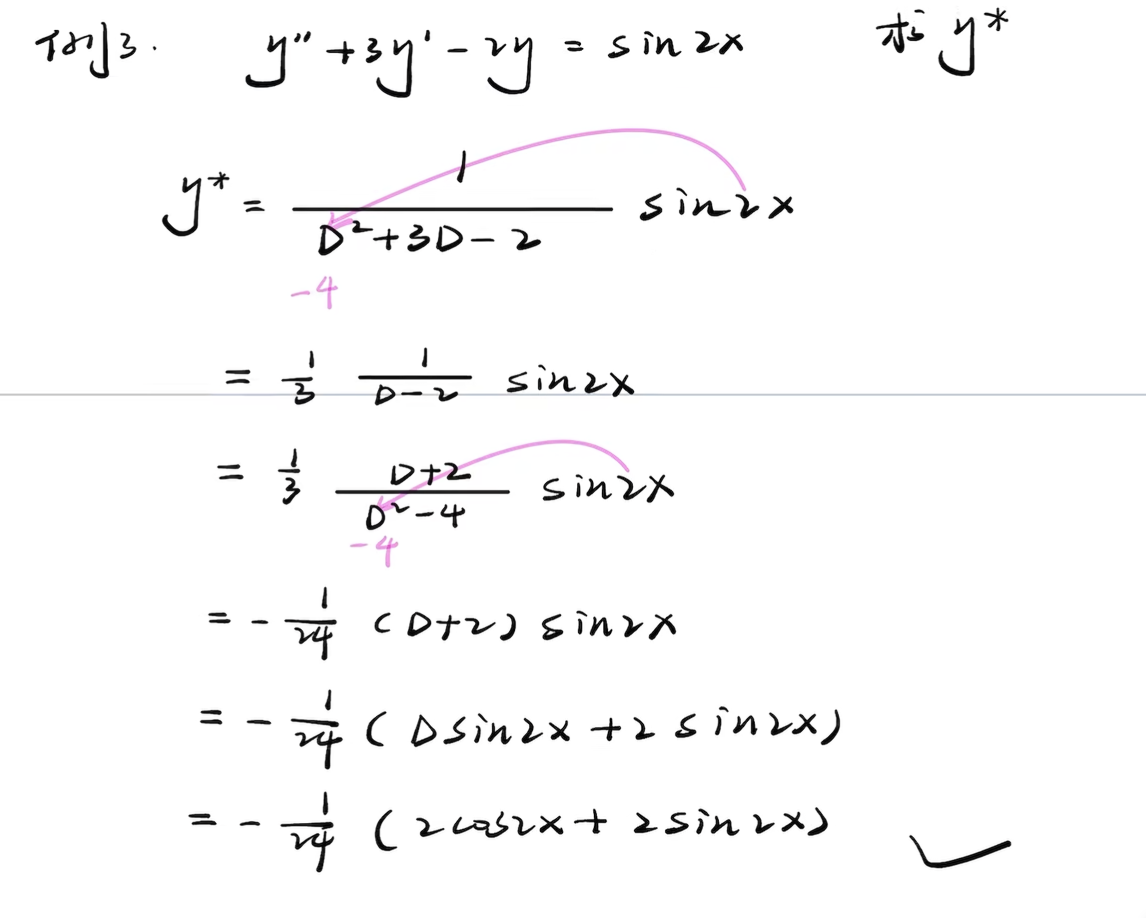 例3. y'' + 3y' - 2y = sin 2x 求 y*
y* = \frac{1}{D² + 3D - 2} sin 2x
-4
= \frac{1}{3} \frac{1}{D - 2} sin 2x
= \frac{1}{3} \frac{D + 2}{D² - 4} sin 2x
-4
= - \frac{1}{24} (D + 2) sin 2x
= - \frac{1}{24} (D sin 2x + 2 sin 2x)
= - \frac{1}{24} (2 cos 2x + 2 sin 2x)